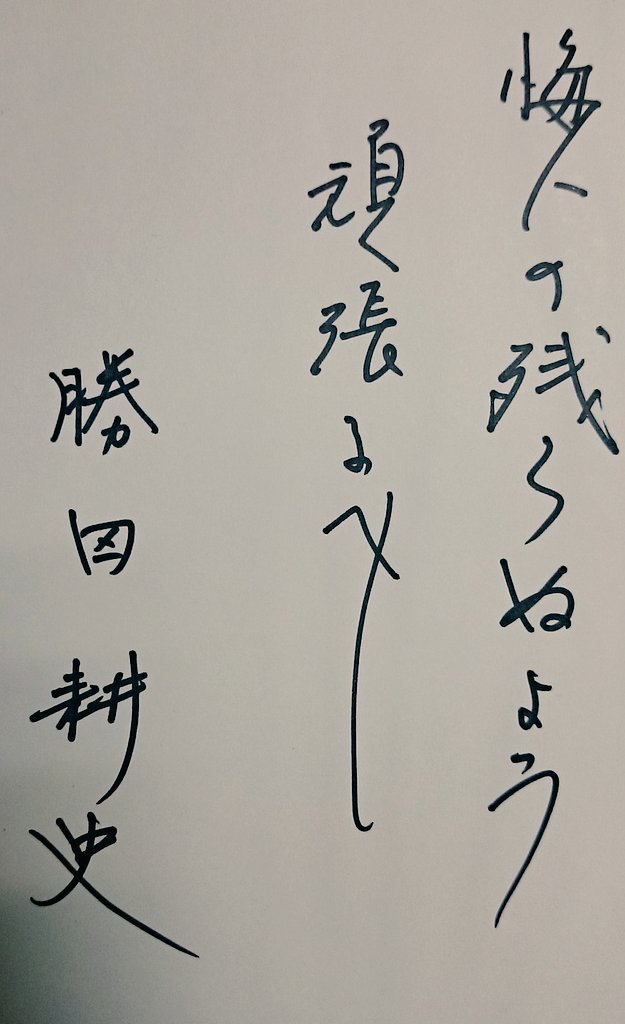 悔いの残らぬよう
頑張るべし
勝田耕史